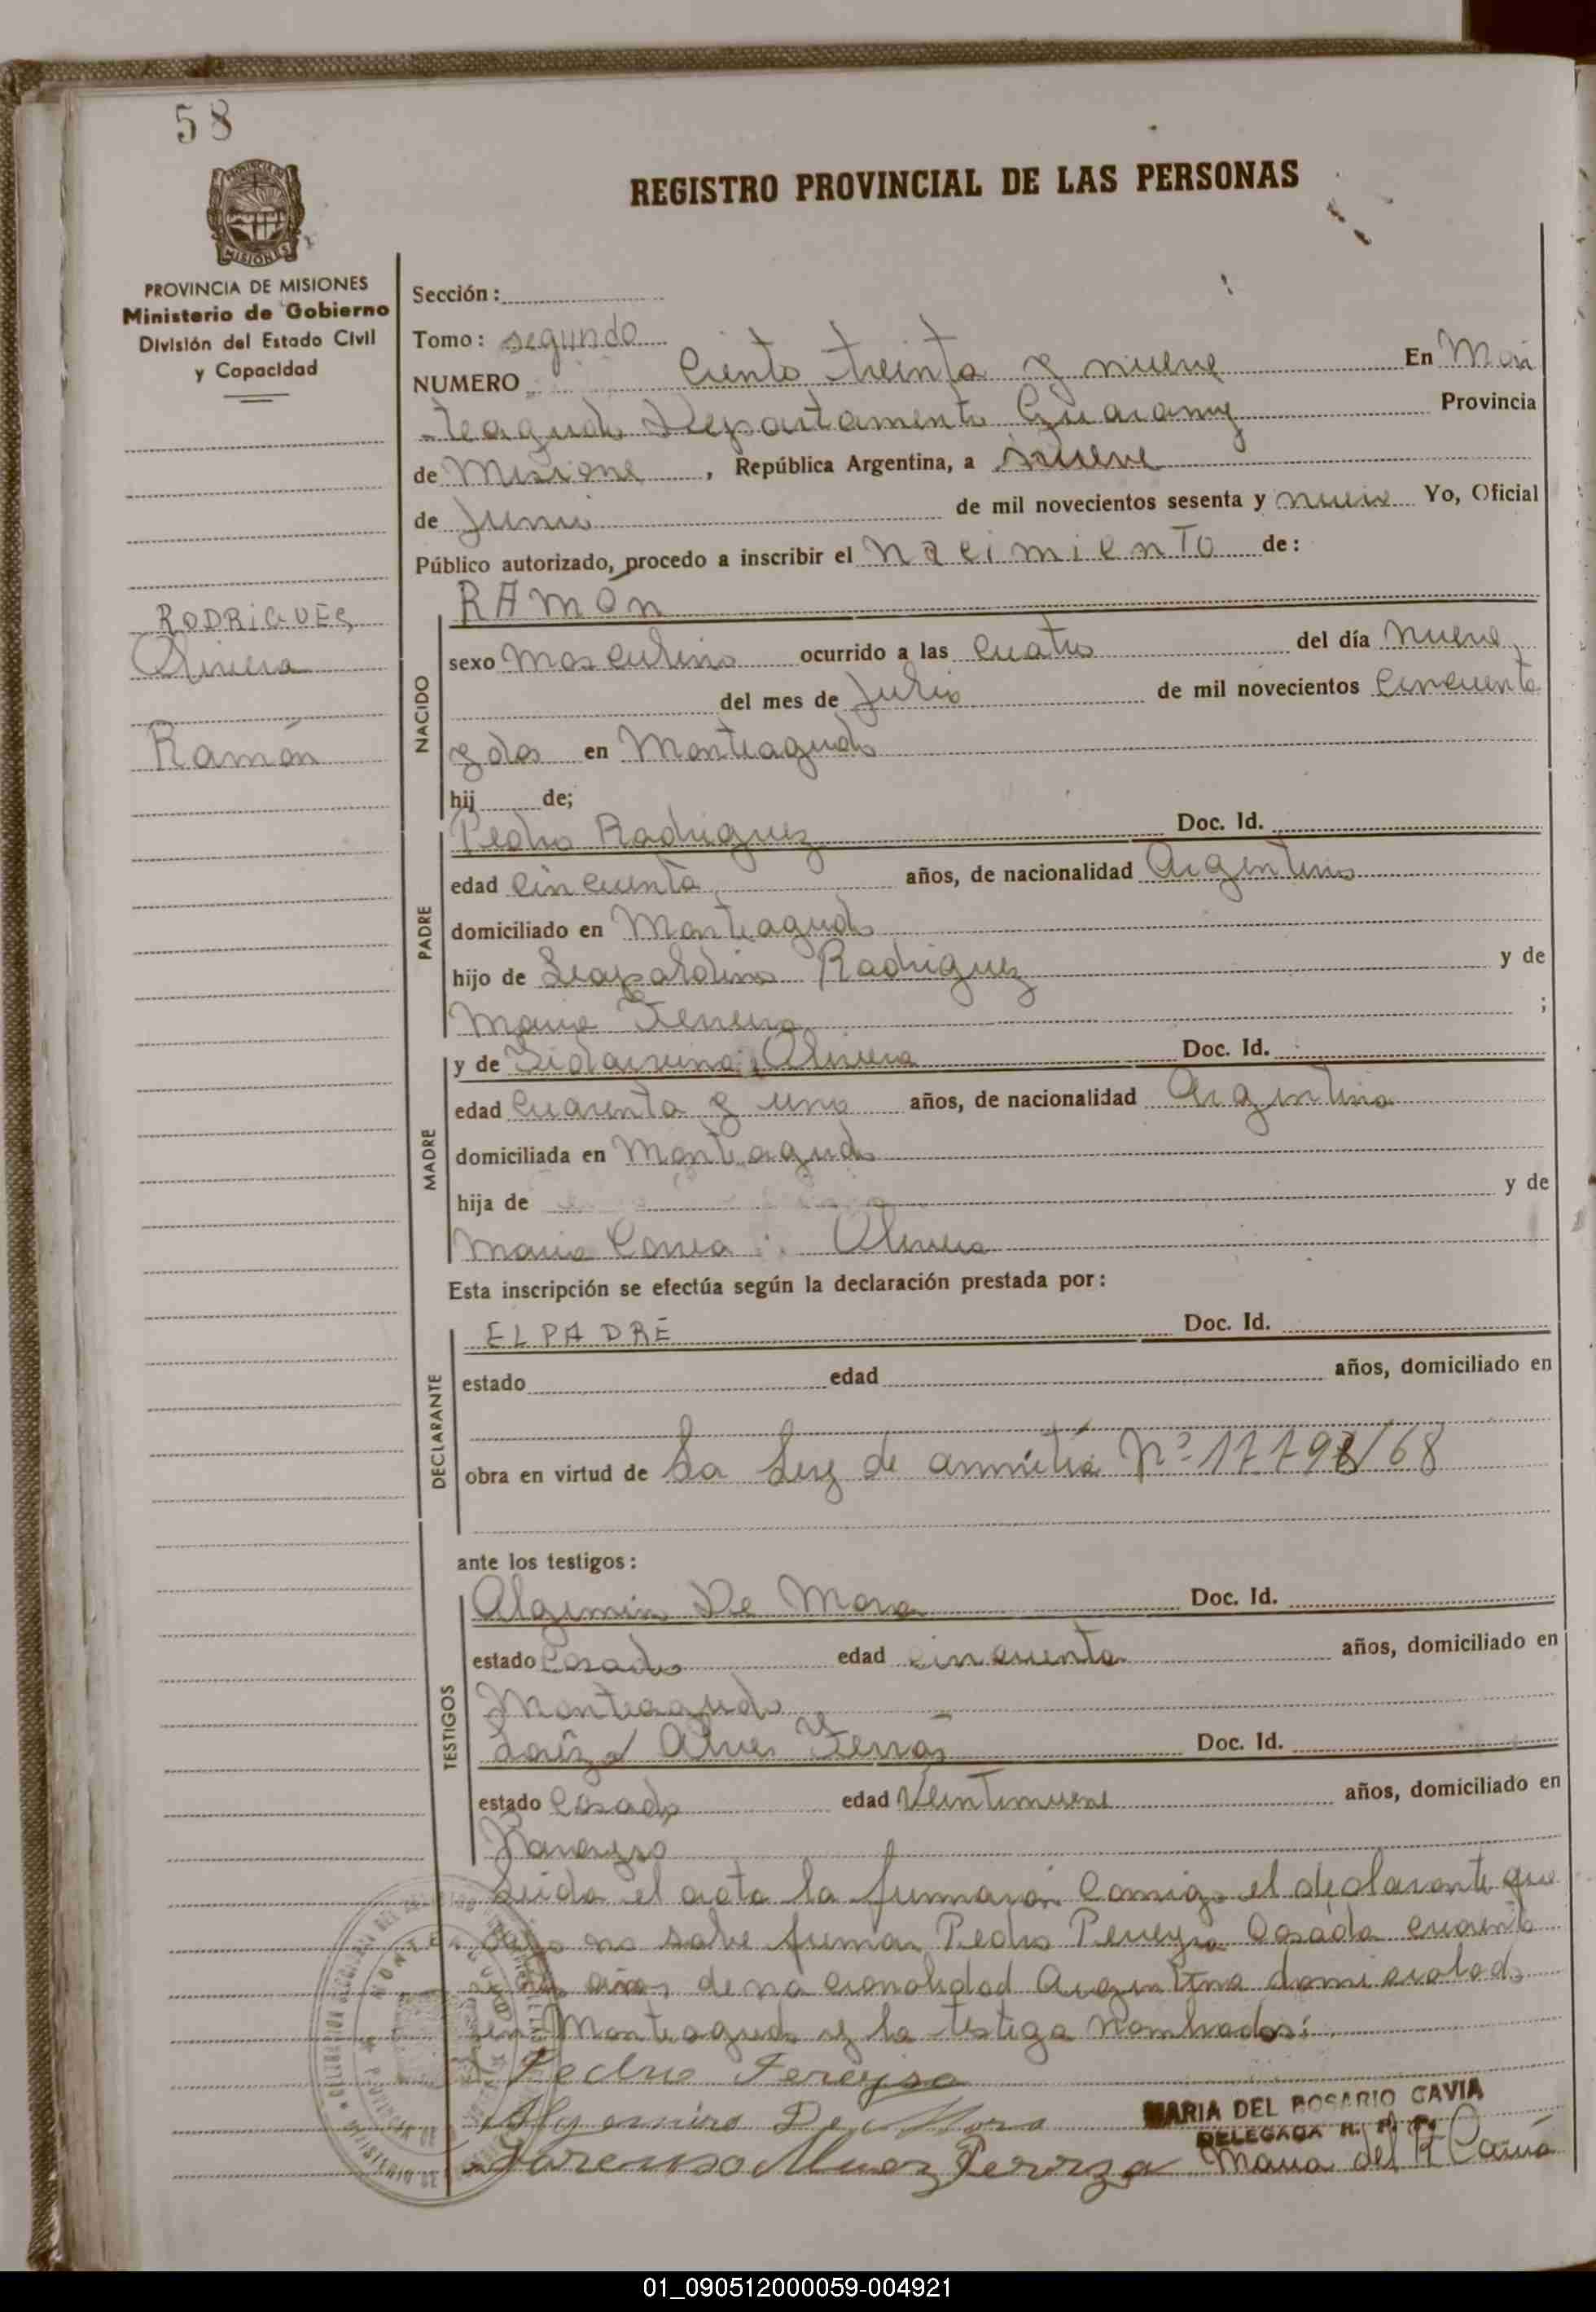 58
REGISTRO PROVINCIAL DE LAS PERSONAS
MISIONES
PROVINCIA DE MISIONES
Ministerio de Gobierno
División del Estado Civil
y Capacidad
RODRIGUES
Olivera
Ramón
Sección:
Tomo: segundo
NUMERO Ciento treinta y nueve En Mon
teagudo Departamento Guarany Provincia
de Misione, República Argentina, a nueve
de Junio de mil novecientos sesenta y nueve Yo, Oficial
Público autorizado, procedo a inscribir el nacimiento de:
RAMÓN
NACIDO
sexo Masculino ocurrido a las cuatro del día nueve
del mes de Julio de mil novecientos cincuenta
y dos en Monteagudo
hij de;
PADRE
Pedro Rodriguez Doc. Id.
edad cincuenta años, de nacionalidad Argentino
domiciliado en Monteagudo
hijo de Leopoldino Rodriguez y de
Maria Ferreira ;
MADRE
y de Olivera Doc. Id.
edad cuarenta y uno años, de nacionalidad Argentina
domiciliada en Monteagudo
hija de y de
Maria Correa Olivera
Esta inscripción se efectúa según la declaración prestada por:
DECLARANTE
EL PADRE Doc. Id.
estado edad años, domiciliado en
obra en virtud de La Ley de amnitía Nº 17798/68
ante los testigos:
TESTIGOS
Algemiro De Mora Doc. Id.
estado Casado edad cincuenta años, domiciliado en
Monteagudo
Alves Doc. Id.
estado Casado edad Veintinueve años, domiciliado en
Leida el acta la firmaron Conmigo el declarante que
no sabe firmar Pedro Pereyra Casado cuarenta
años de nacionalidad Argentina domiciliado
en Monteagudo y la testiga nombrados:
Pedro Pereyra
Algemiro De Mora
MARIA DEL ROSARIO CAVIA
DELEGADA R. P. P.
Maria del R Cavia
01_090512000059-004921